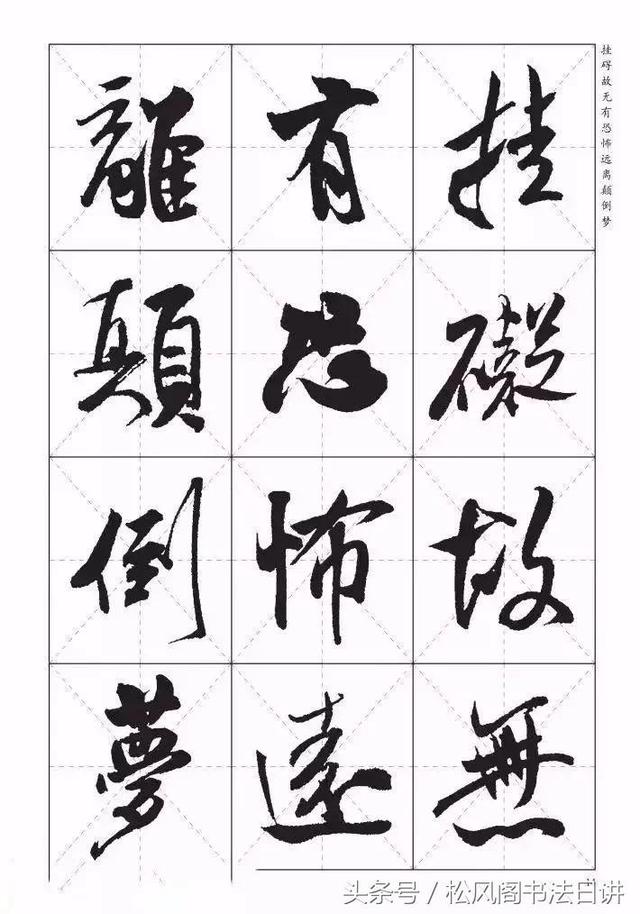 挂礙故無
有恐怖遠
離顛倒夢
挂碍故无有恐怖远离颠倒梦
头条号／松风阁书法日讲